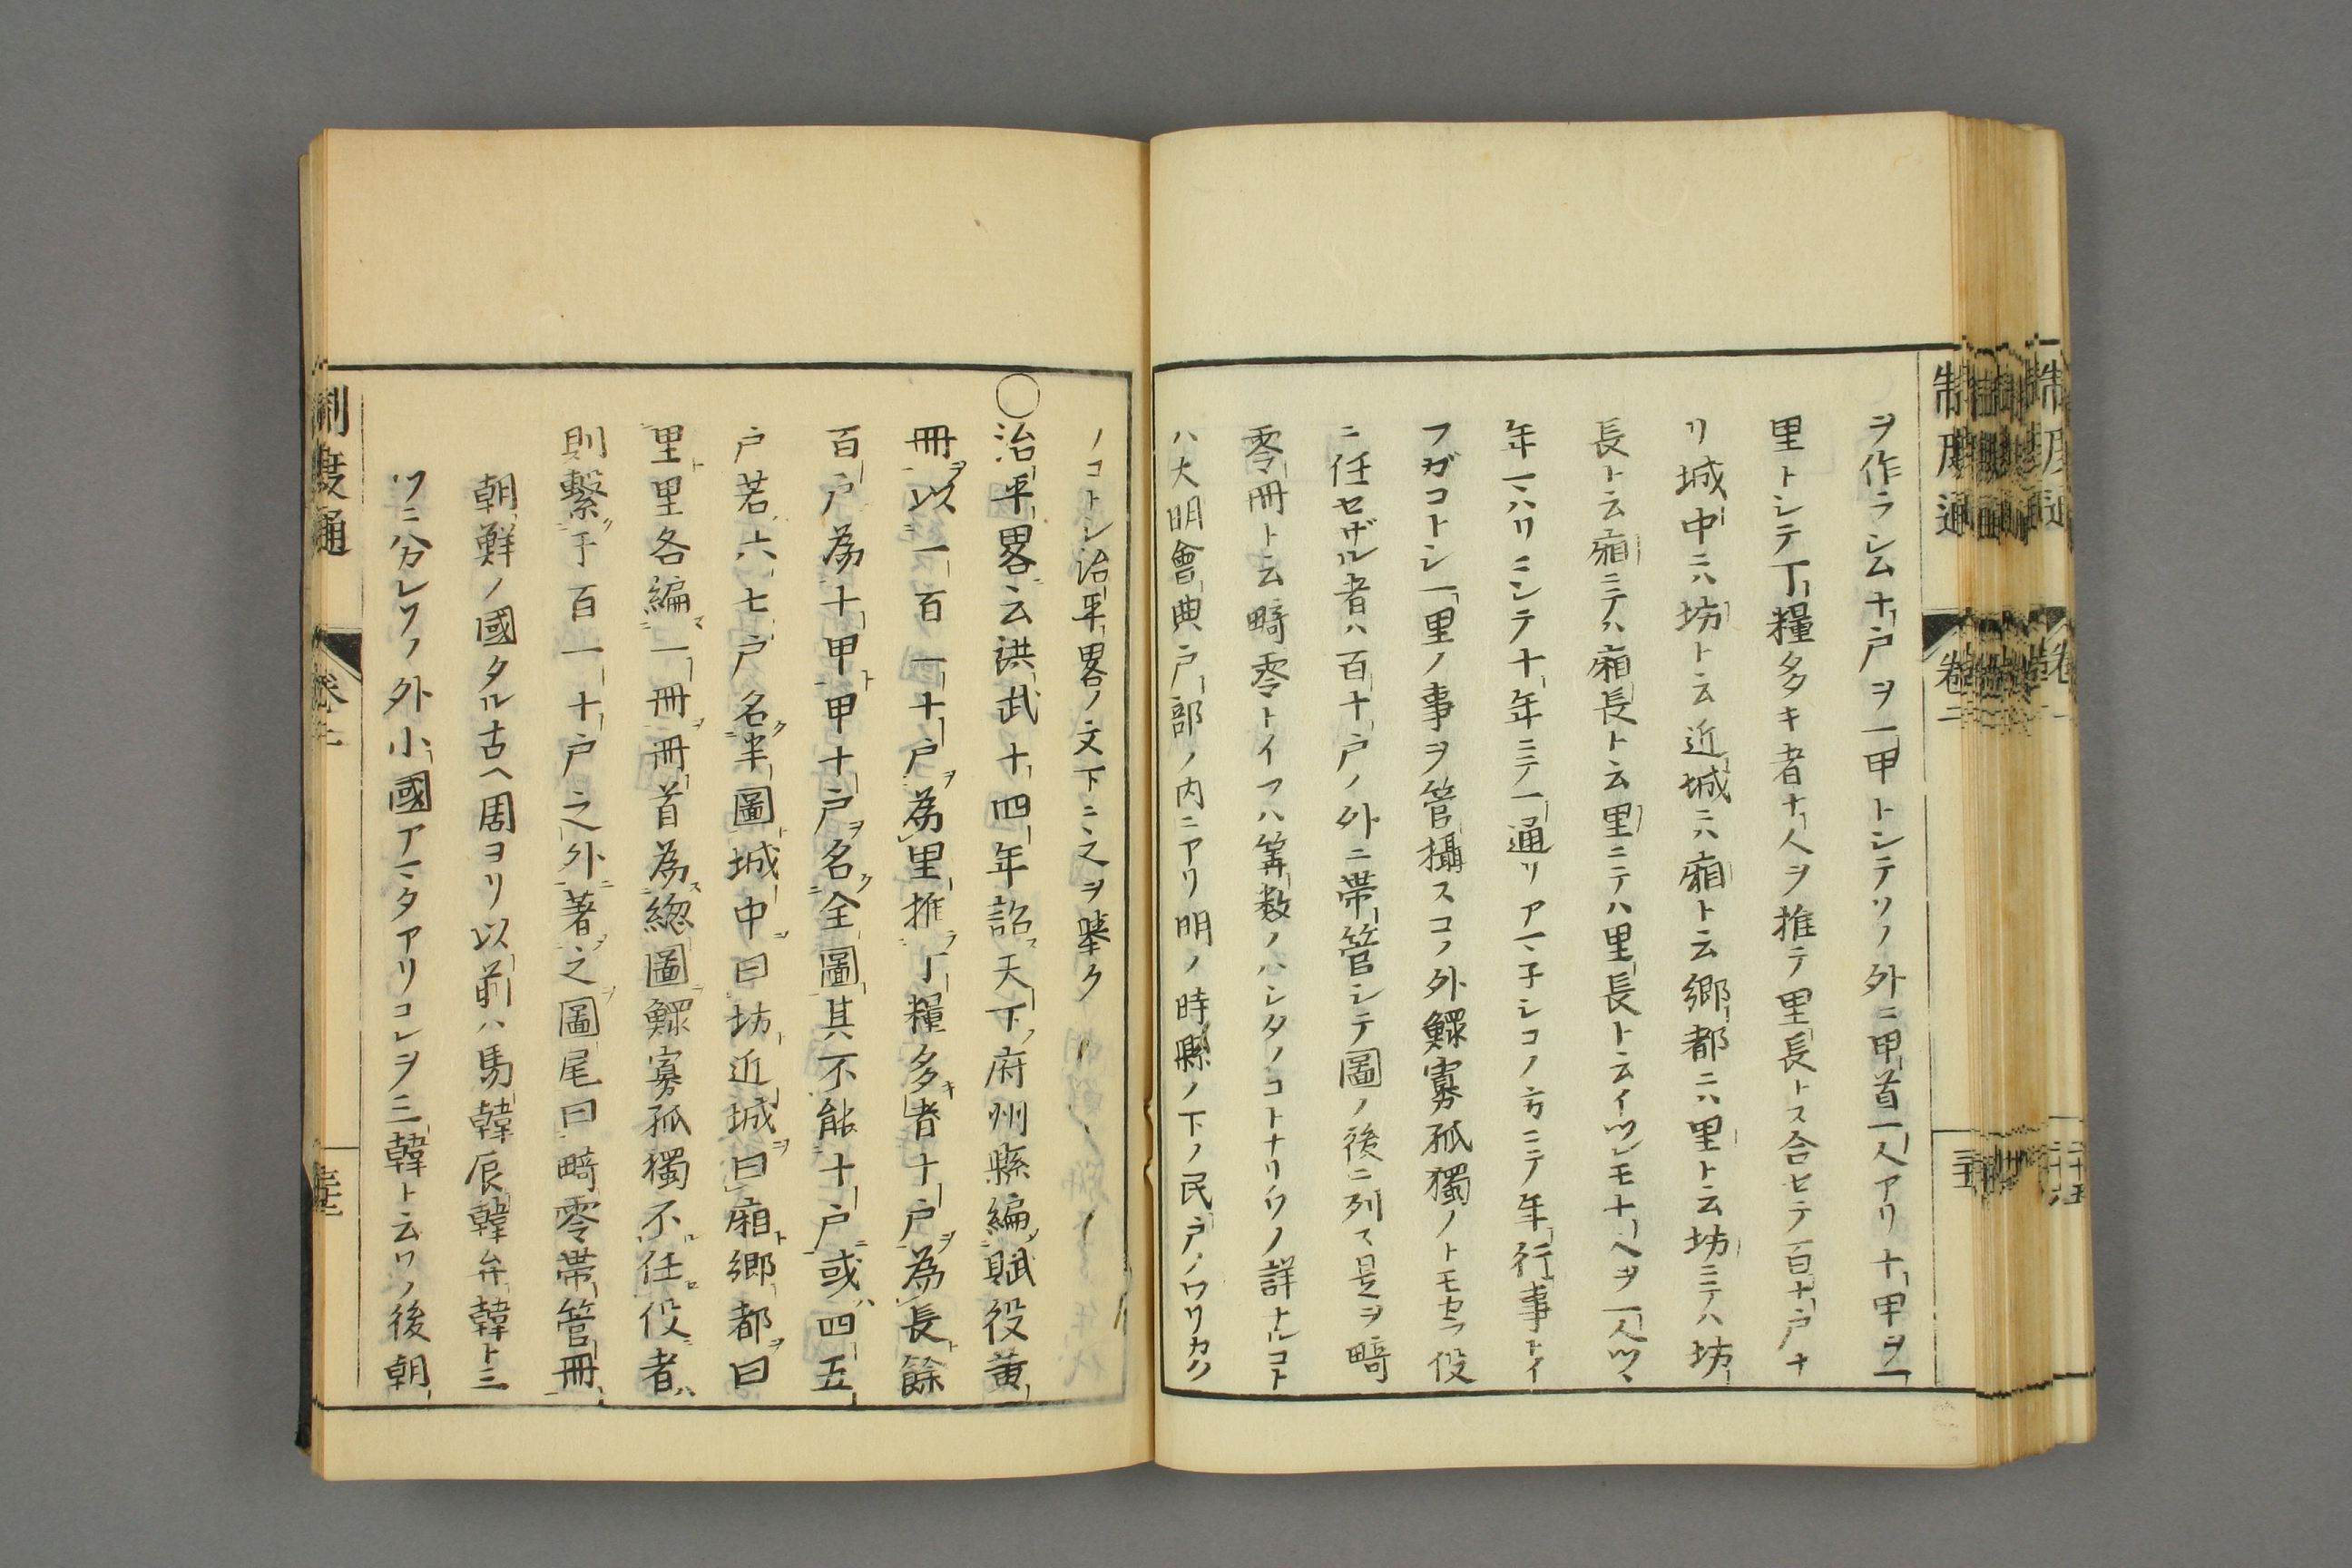 制度通 卷二
ヲ作ラシム十戸ヲ一甲トシテソノ外ニ甲首一人アリ十甲ヲ一
里トシテ丁糧多キ者十人ヲ推テ里長トス合セテ百十戸ナ
リ城中ニハ坊ト云近城ニハ廂ト云郷都ニハ里ト云坊ニテハ坊
長ト云廂ニテハ廂長ト云里ニテハ里長ト云イツレモ十人ヲ一人ツヽ
年マハリニシテ十年ニテ一通リアマ子シコノ方ニテ年行事トイ
フガコトシ一里ノ事ヲ管攝スコノ外鰥寡孤獨ノトモカラ役
ニ任セザル者ハ百十戸ノ外ニ帶管シテ圖ノ後ニ列ス是ヲ畸
零冊ト云畸零トイフハ筭数ノハシタノコトナリソノ詳ナルコト
ハ大明會典戸部ノ内ニアリ明ノ時縣ノ下ノ民戸ノワリカク
ノコトシ治平畧ノ文下ニ之ヲ擧ク
○治平畧ニ云洪武十四年詔天下府州縣編賦役黄
冊以一百一十戸為里推丁糧多者十戸為長餘
百戸為十甲甲十戸名全圖其不能十戸或四五
戸若六七戸名半圖城中曰坊近城曰廂郷都曰
里里各編一冊冊首為緫圖鰥寡孤獨不任役者
則繫于百一十戸之外著之圖尾曰畸零帶管冊
朝鮮ノ國タル古ヘ周ヨリ以前ハ馬韓辰韓弁韓ト三
ツニ分レソノ外小國アマタアリコレヲ三韓ト云ソノ後朝
制度通 卷二